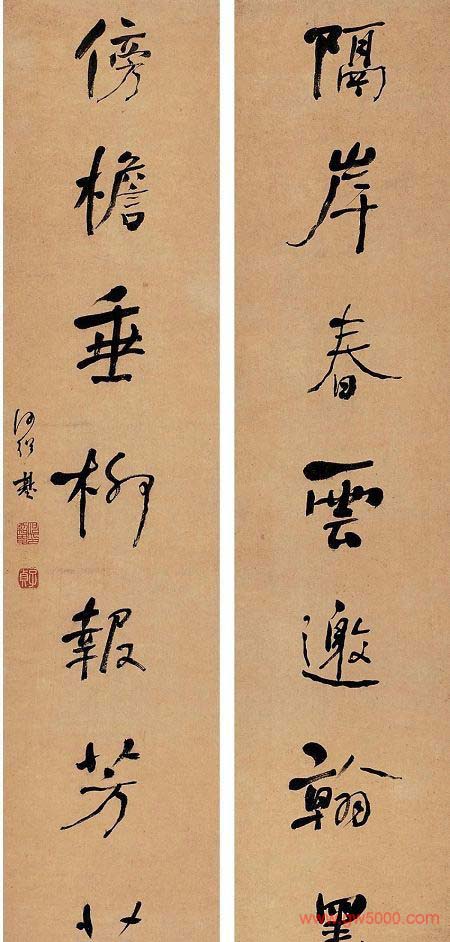 隔岸春雲邀翰墨
傍檐垂柳報芳
何紹基
子貞